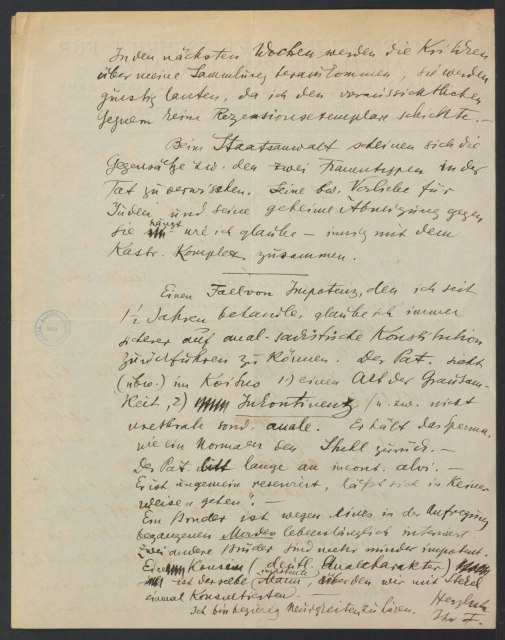 In den nächsten Wochen werden die Kritiken
über meine Sammlung herauskommen, sie werden
günstig lauten, da ich den voraussichtlichen
Gegnern keine Rezensionsexemplare schickte. —
Beim Staatsanwalt scheinen sich die
Gegensätze zw. den zwei Frauentypen in der
Tat zu verwischen. Seine bw. Vorliebe für
Jüden und seine geheime Abneigung gegen
sie hängt wie ich glaube — innig mit dem
Kastr. Komplex zusammen.
Einen Fall von Impotenz, den ich seit
1½ Jahren behandle, glaube ich immer
sicherer auf anal-sadistische Konstitution
zurückführen zu können. Der Pat. sieht
(ubw.) im Koitus 1) einen Akt der Grausam-
keit, 2) Inkontinenz (u. zw. nicht
urethrale sond. anale. Er hält das Sperma,
wie ein Normaler den Stuhl zurück. —
Der Pat. litt lange an incont. alvi. —
Er ist ungemein reserviert, läßt sich in keiner
weise "gehen". —
Ein Bruder ist wegen eines in der Aufregung
begangenen Mordes lebenslänglich interniert
Zwei andere Brüder sind mehr minder impotent.
Eine Kousine (deutl. Analcharakter)
ist derselbe impotente Mann, über den wir mit
einmal konsultierten. —
Ich bin begierig Neuigkeiten zu hören.
Herzlich
Ihr F.